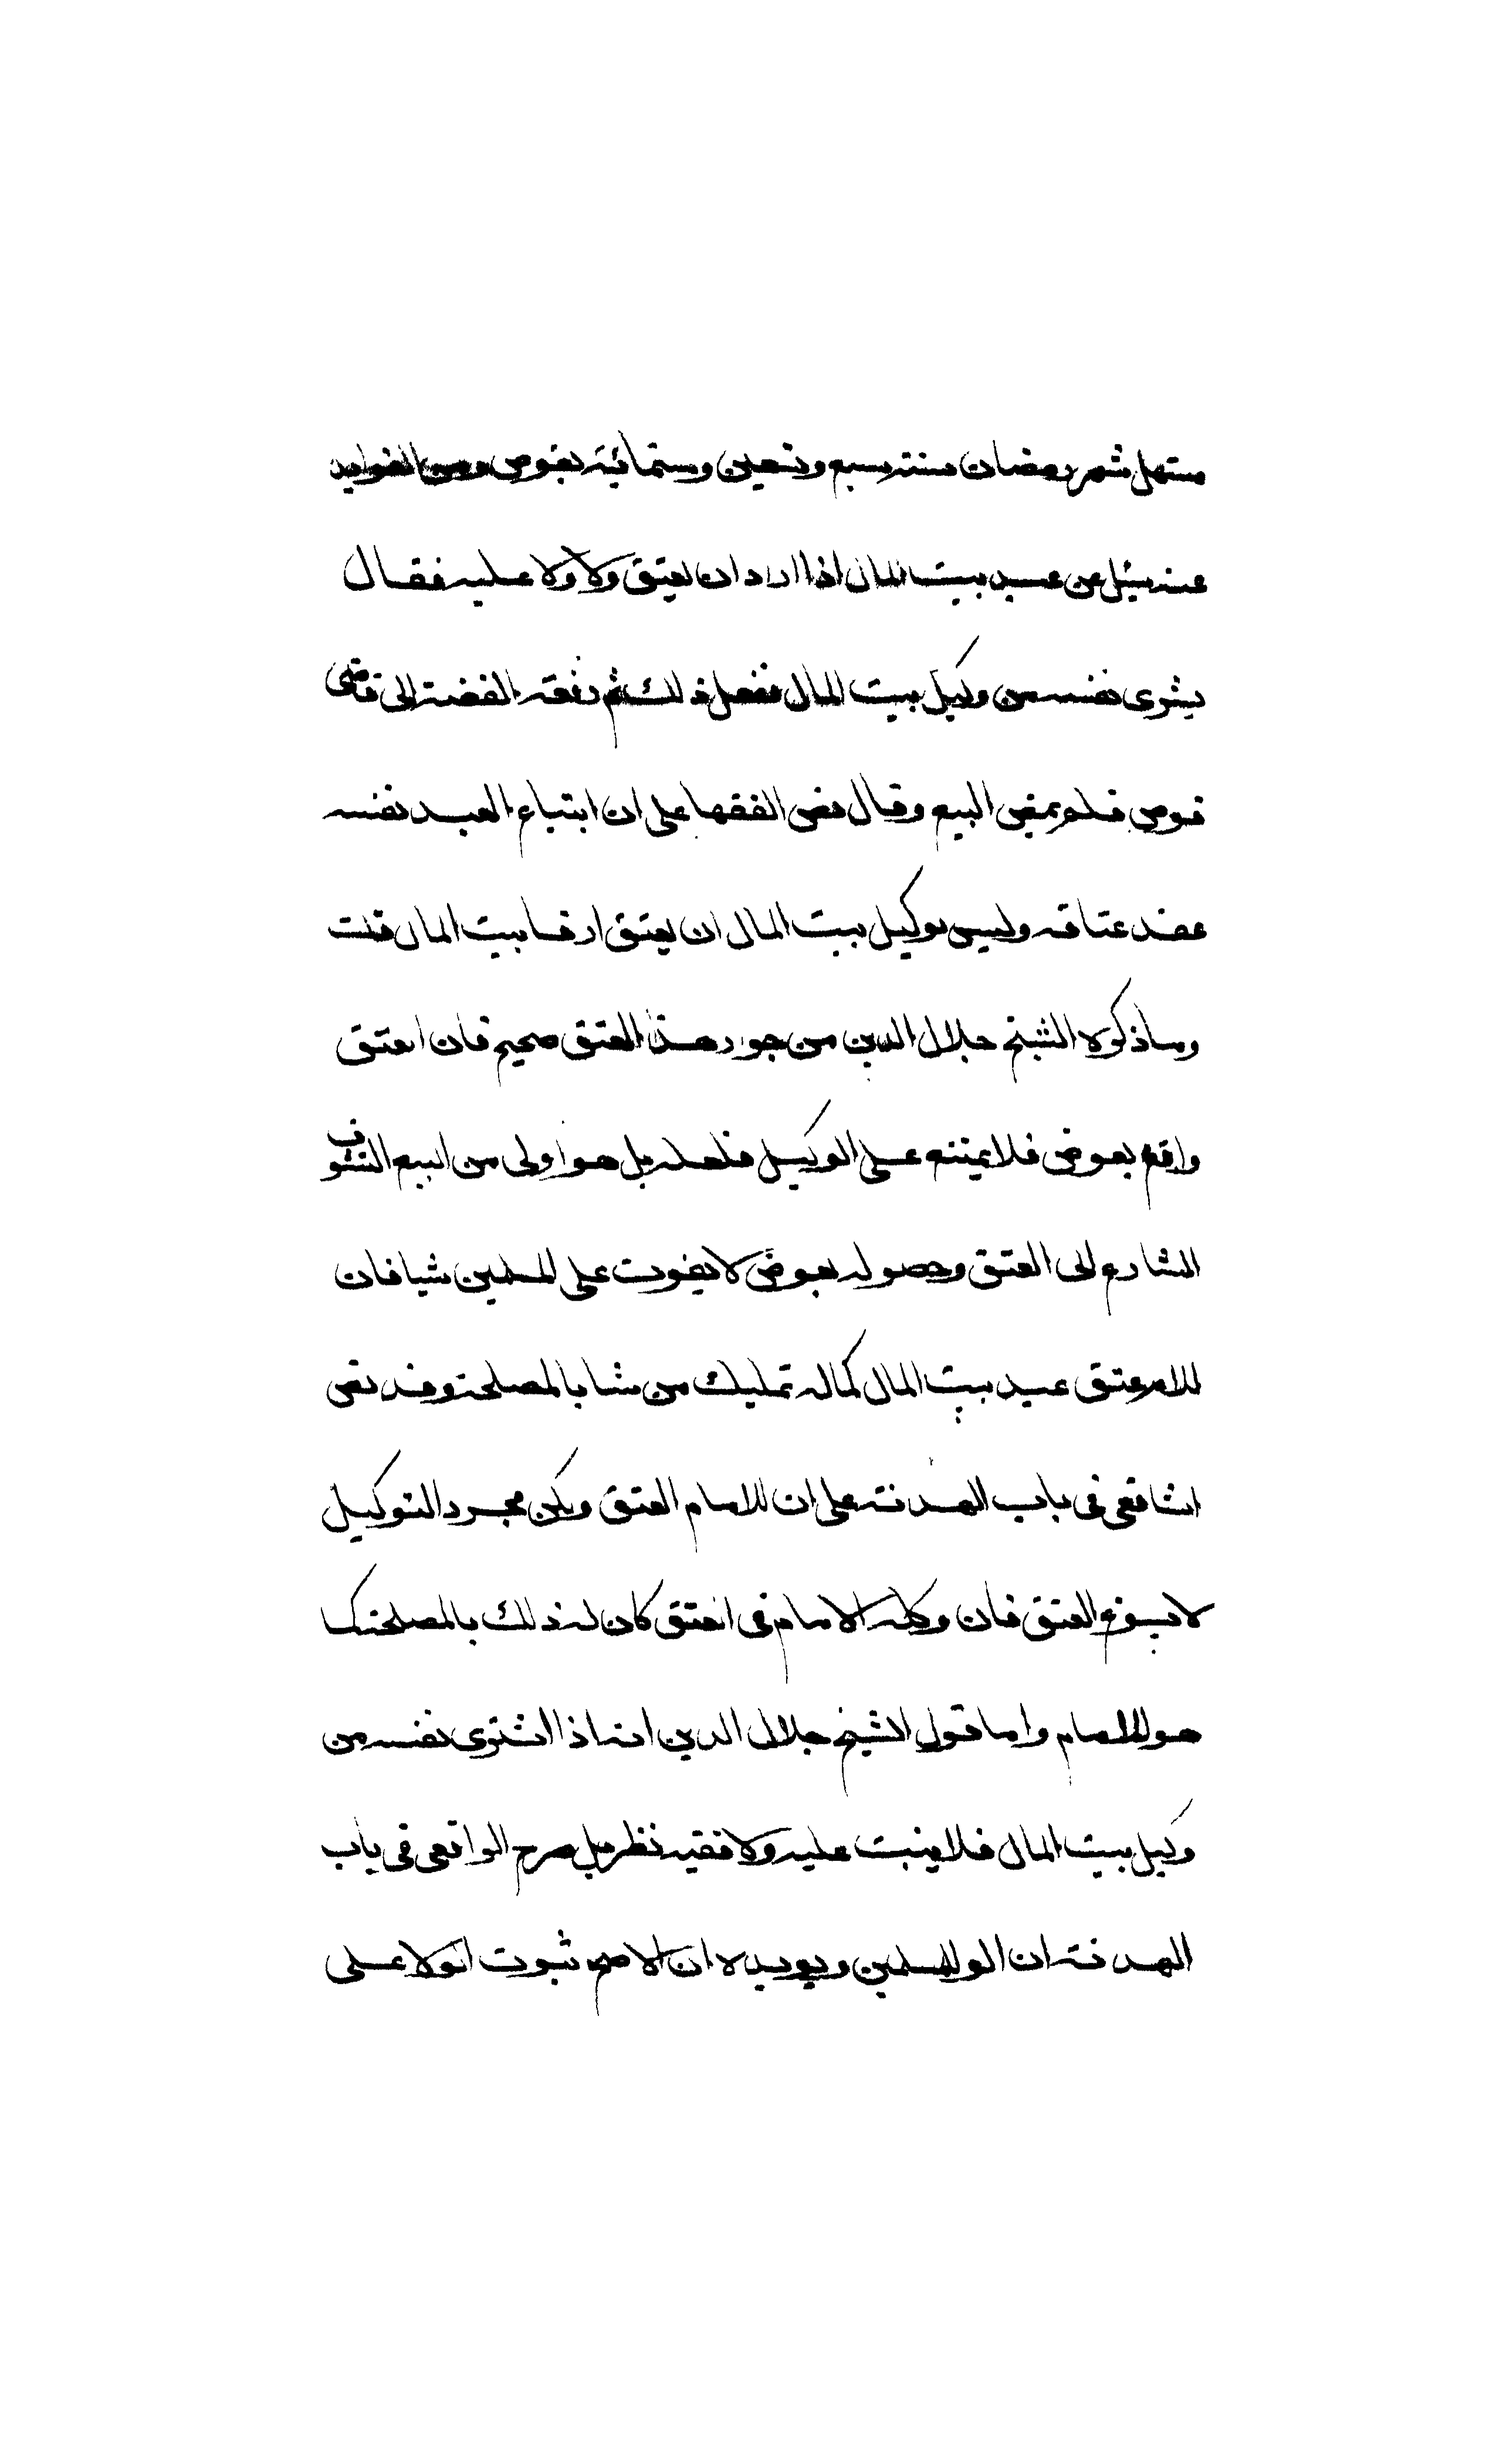 مستهل شهر رمضان سنة سبع وتسعين وستمائة بقوص ومن الفوايد
عنه سئل عن عبد بيت المال اذا اراد ان يعتق ولا ولا عليه فقال
يشترى نفسه من وكيل بيت المال ففعل ذلك ثم رفعه القضة الى قاضى
قوص فلم يمض البيع وقال نص الفقها على ان ابتياع العبد نفسه
عقد عتاقه وليس لوكيل بيت المال ان يعتق ارقا بيت المال قلت
وماذكره الشيخ جلال الدين من جوز هذا العتق صحيح فان العتق
واقع بعوض فلا يمتنع على الوكيل فعله بل هو اولى من البيع التشوف
الشارع الى العتق وحصوله بعوض لا يفوت على المسلمين شيا فان
للامر عتق عبد بيت المال كماله تمليك من شا بالمصلحة وقد نص
الشافعى فى باب الهدنة على ان للامام العتق ولكن مجرد التوكيل
لا يسوغ العتق فان وكله الامام فى العتق كان له ذلك بالمصلحة كما
هو للامام واما قول الشيخ جلال الدين انه اذا اشترى نفسه من
وكيل بيت المال فلا يثبت عليه ولا ففيه نظر بل صرح الرافعى فى باب
الهدنة ان الولا للمسلمين ويويده ان الاصح ثبوت الولا على